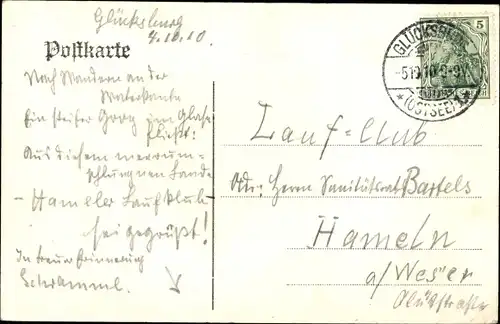 Glücksburg
4.10.10.
Postkarte
Nach Wandern an der
Waterkante
Ein steifer Grog im Glase
fließt:
Aus diesem meerum-
schlungnen Lande
- Hamelner Lauf Klub
sei gegrüßt!
In treuer Erinnerung
Schramml.
GLÜCKSBURG
-5.10.10.
*(OSTSEE)*
5
Lauf-Club
Adr: Herrn Sanitätsrat Bartels
Hameln
a/Weser